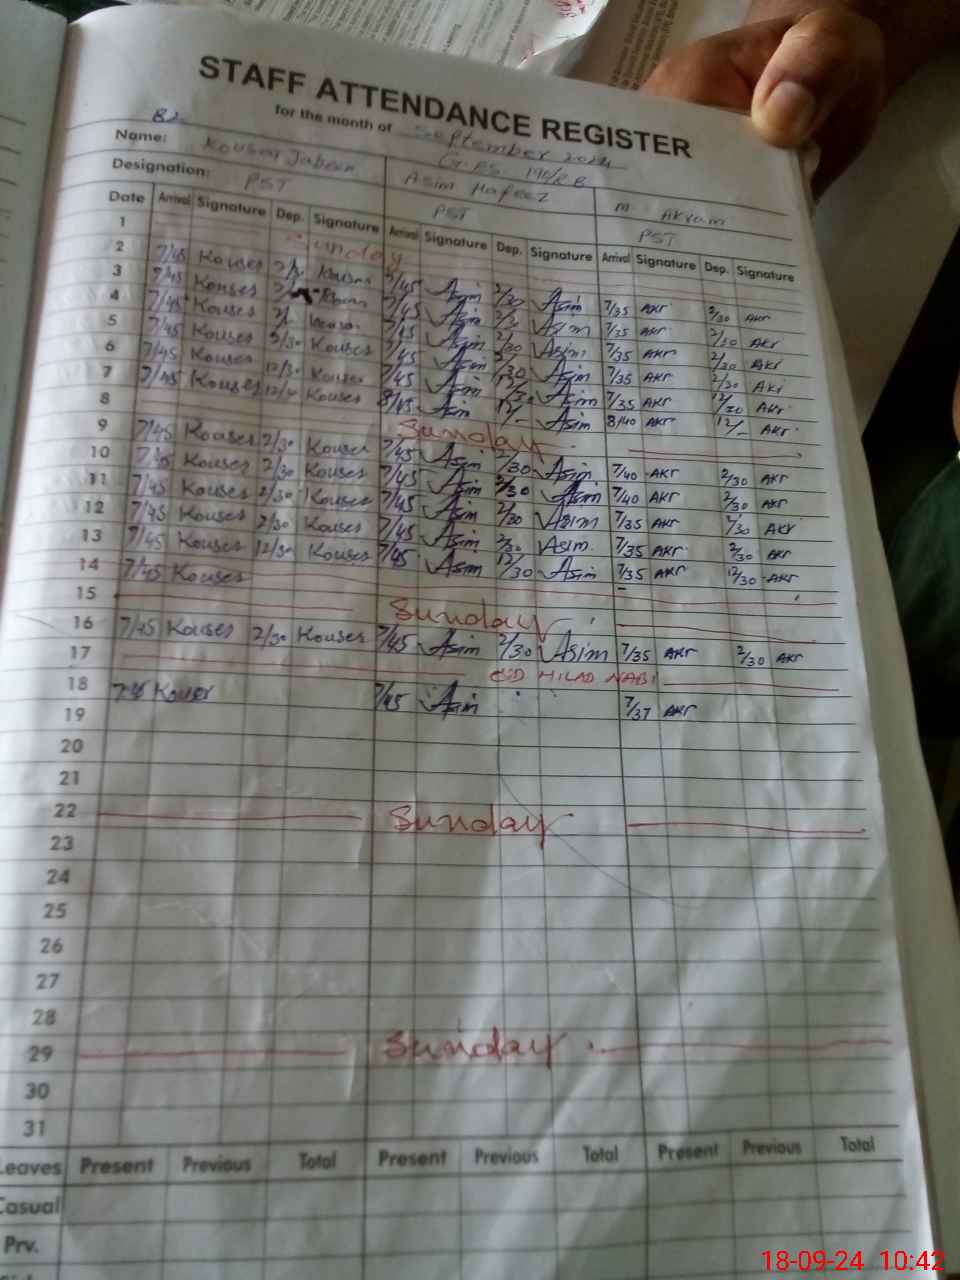 STAFF ATTENDANCE REGISTER
for the month of September 2024
Name: Kousar Jabeen Asim Hafeez M. Akram
Designation: PST PST PST
Date Arrival Signature Dep. Signature Arrival Signature Dep. Signature Arrival Signature Dep. Signature
1 Sunday
2 7/45 Kouses Kouses 7/45 Asim 2/30 Asim 7/35 AKr 2/30 AKr
3 7/45 Kouses 7/45 Asim Asim 7/35 AKr 2/30 AKr
4 7/45 Kouses 7/45 Asim 2/30 Asim 7/35 AKr 2/30 AKr
5 7/45 Kouses 2/30 Kouses 7/45 Asim 2/30 Asim 7/35 AKr 2/30 AKr
6 7/45 Kouses 12/30 Kouses 7/45 Asim Asim 7/35 AKr 12/30 AKr
7 7/45 Kouses Kouses 8/45 Asim 12/- Asim 8/40 AKr 12/- AKr
8 Sunday
9 7/45 Kouses 2/30 Kouses 7/45 Asim 2/30 Asim 7/40 AKr 2/30 AKr
10 7/45 Kouses 2/30 Kouses 7/45 Asim 2/30 Asim 7/40 AKr 2/30 AKr
11 7/45 Kouses 2/30 Kouses 7/45 Asim 2/30 Asim 7/35 AKr 2/30 AKr
12 7/45 Kouses 2/30 Kouses 7/45 Asim 2/30 Asim 7/35 AKr 2/30 AKr
13 7/45 Kouses 12/30 Kouses 7/45 Asim 12/30 Asim 7/35 AKr 12/30 AKr
14 7/45 Kouses
15 Sunday
16 7/45 Kouses 2/30 Kouses 7/45 Asim 2/30 Asim 7/35 AKr 2/30 AKr
17 EID MILAD NABI
18 7/45 Kouser 7/45 Asim 7/37 AKr
19
20
21
22 Sunday
23
24
25
26
27
28
29 Sunday
30
31
Leaves Present Previous Total Present Previous Total Present Previous Total
Casual
Prv.
18-09-24 10:42